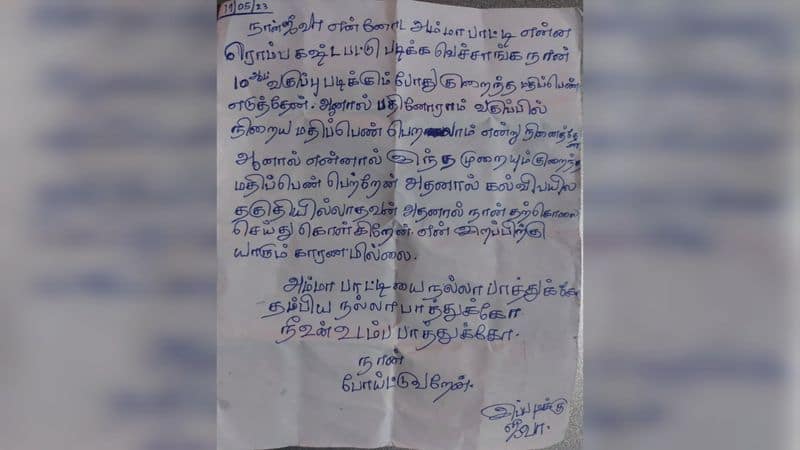 19/05/23
நான் ஜீவா என்னோட அம்மா பாட்டி என்ன
ரொம்ப கஷ்டபட்டு படிக்க வெச்சாங்க நான்
10ஆம் வகுப்பு படிக்கும் போது குறைந்த மதிப்பெண்
எடுத்தேன். ஆனால் பதினோராம் வகுப்பில்
நிறைய மதிப்பெண் பெறலாம் என்று நினைத்தேன்
ஆனால் என்னால் இந்த முறையும் குறைந்த
மதிப்பெண் பெற்றேன் அதனால் கல்வி பயில
தகுதியில்லாதவன் அதனால் நான் தற்கொலை
செய்து கொள்கிறேன். என் இறப்பிற்கு
யாரும் காரணமில்லை.
அம்மா பாட்டியை நல்லா பாத்துக்கோ
தம்பிய நல்லா பாத்துக்கோ
நீ உன் உடம்ப பாத்துக்கோ.
நான்
போய்ட்டுவறேன்.
இப்படிக்கு
ஜீவா.